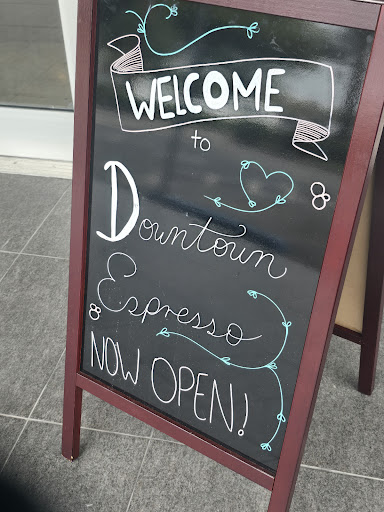 WELCOME
to
Downtown
Espresso
NOW OPEN!